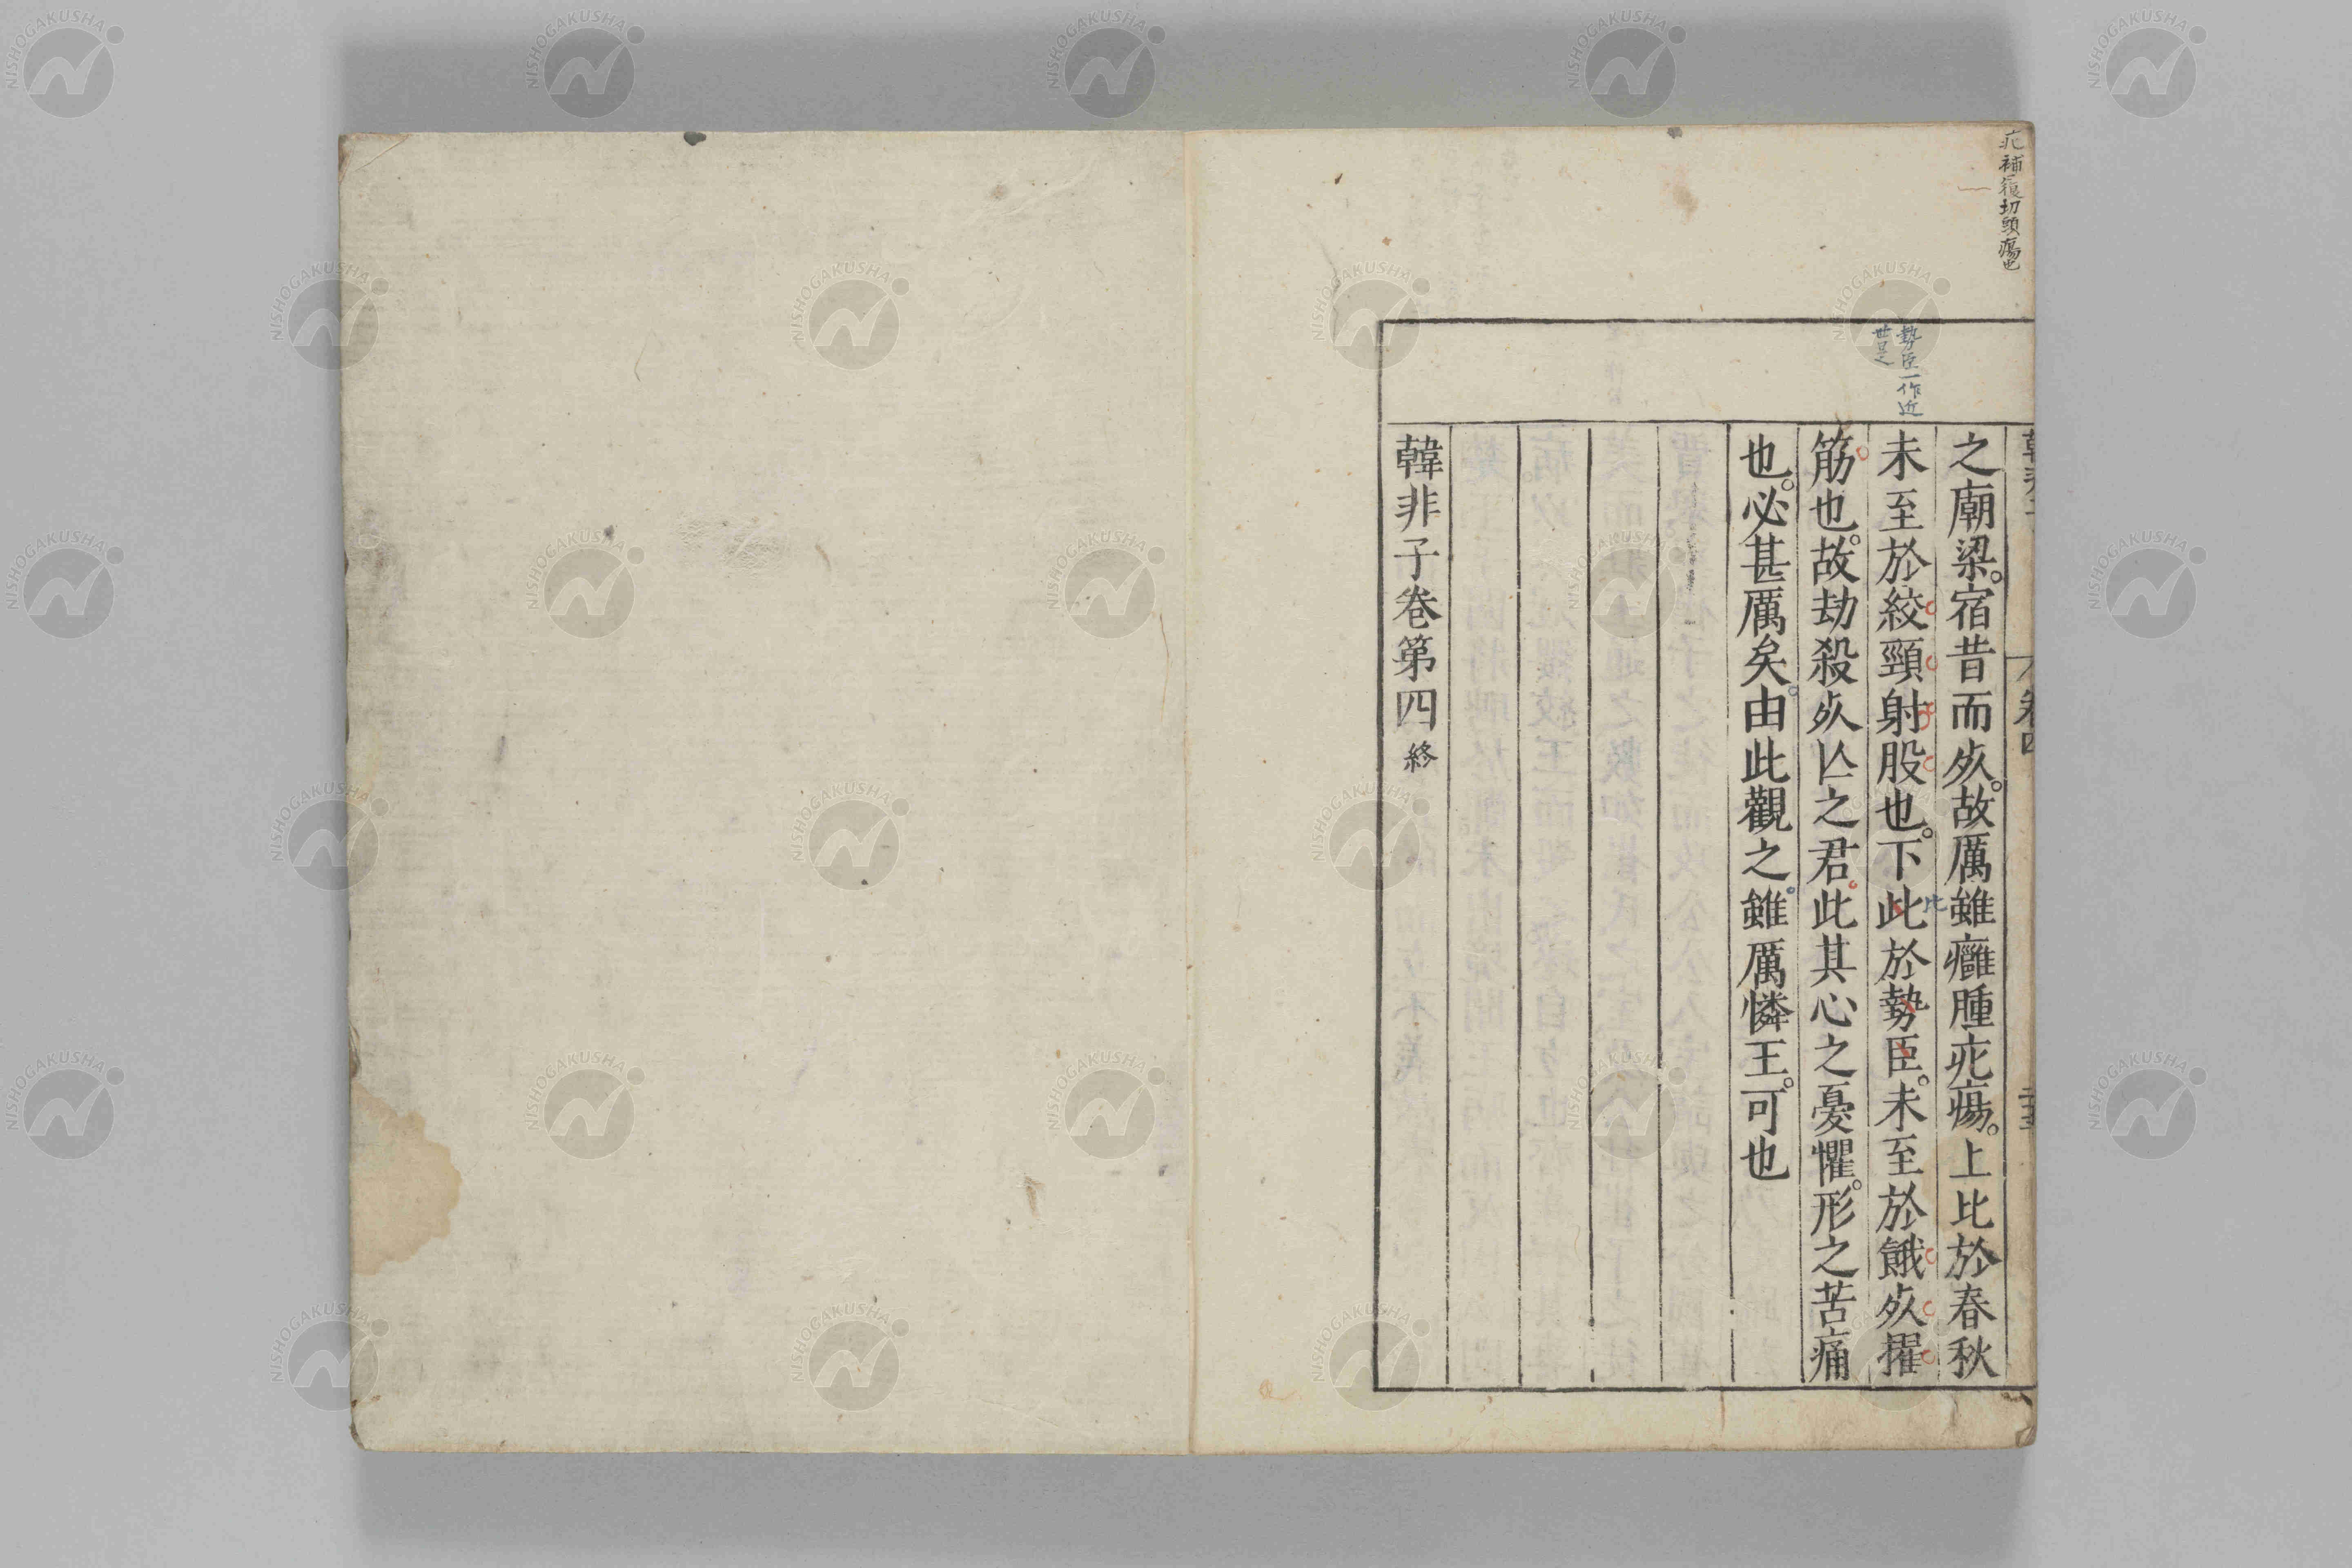 疕補履切頭瘍也
勢臣一作近
世曰之
之廟梁。宿昔而𣦸。故厲雖癰腫疕瘍。上比於春秋
未至於絞頸射股也。下此於勢臣。未至於餓𣦸擢
比
筋也。故劫殺𣦸亾之君。此其心之憂懼。形之苦痛
也。必甚厲矣。由此觀之。雖厲憐王。可也
韓非子卷第四終
NISHOGAKUSHA